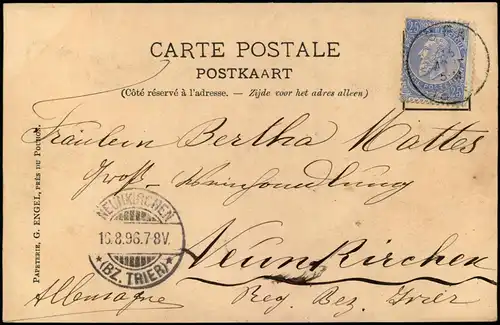 CARTE POSTALE
POSTKAART
(Côté réservé à l'adresse. — Zijde voor het adres alleen)
25 25
Fräulein Bertha Mattes
Groß-Weinhandlung
NEUNKIRCHEN
16.8.96.7-8V.
* (BZ. TRIER) *
Neunkirchen
Allemagne Reg. Bez. Trier
PAPETERIE, G. ENGEL, PRÈS DU POUHON.